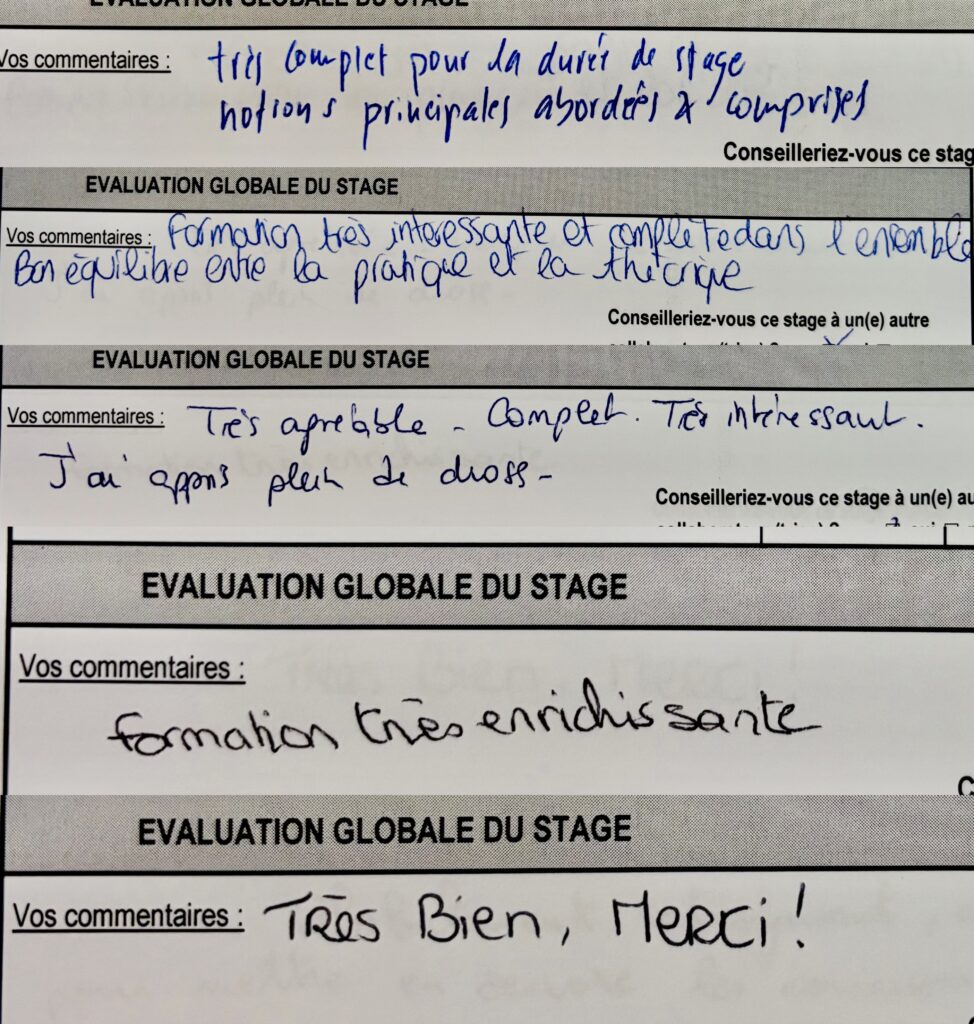 EVALUATION GLOBALE DU STAGE
Vos commentaires : très complet pour la durée de stage
notions principales abordées & comprises
Conseilleriez-vous ce stag
EVALUATION GLOBALE DU STAGE
Vos commentaires : Formation très interessante et complète dans l'ensemble
Bon équilibre entre la pratique et la théorique
Conseilleriez-vous ce stage à un(e) autre
EVALUATION GLOBALE DU STAGE
Vos commentaires : Très agréable - Complet. Très intéressant.
J'ai appris plein de choses -
Conseilleriez-vous ce stage à un(e) au
EVALUATION GLOBALE DU STAGE
Vos commentaires :
formation très enrichissante
EVALUATION GLOBALE DU STAGE
Vos commentaires : TRÈS BIEN, MERCI !